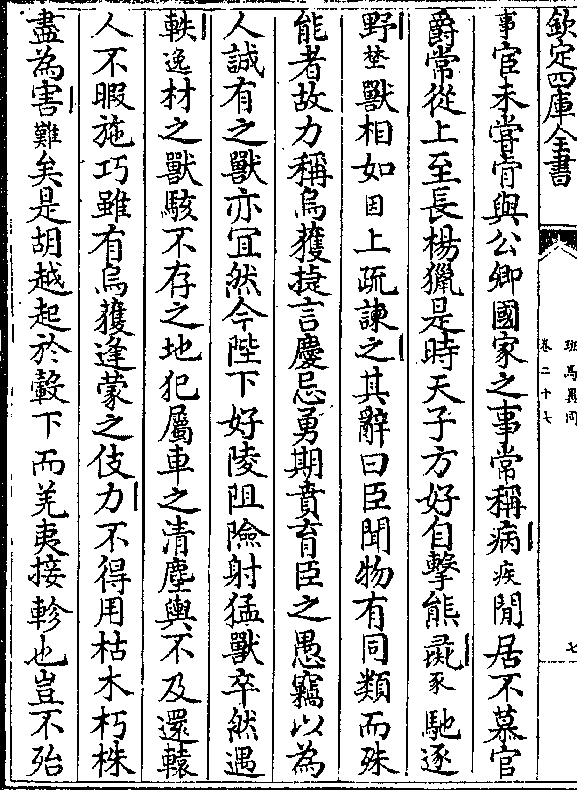 欽定四庫全書
班馬異同
卷二十七
七
事官未嘗肯與公卿國家之事常稱病疾閒居不慕官
爵常從上至長楊獵是時天子方好自擊熊彘豕馳逐
野埜獸相如因上疏諫之其辭曰臣聞物有同類而殊
能者故力稱烏獲捷言慶忌勇期賁育臣之愚竊以為
人誠有之獸亦宜然今陛下好陵阻險射猛獸卒然遇
軼逸材之獸駭不存之地犯屬車之清塵輿不及還轅
人不暇施巧雖有烏獲逢蒙之伎力不得用枯木朽株
盡為害難矣是胡越起於轂下而羌夷接軫也豈不殆